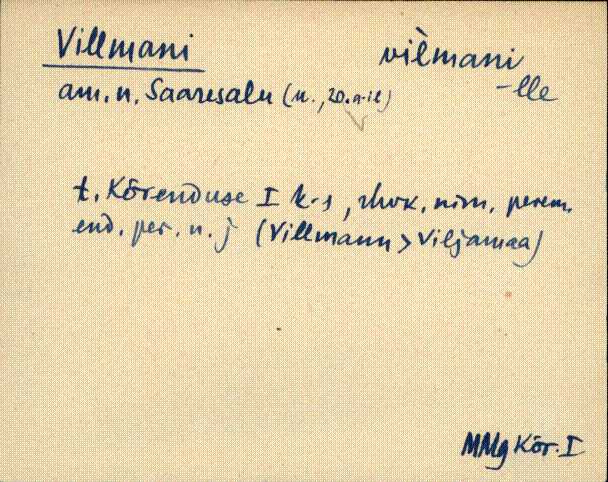 Villmani vilmani
am. n. Saaresalu (u., 20. a-il) -lle
t. Kõrenduse I k-s, rhvk. nim. perem.
end. per. n. j (Villmann > Viljamaa)
MMg Kõr. I